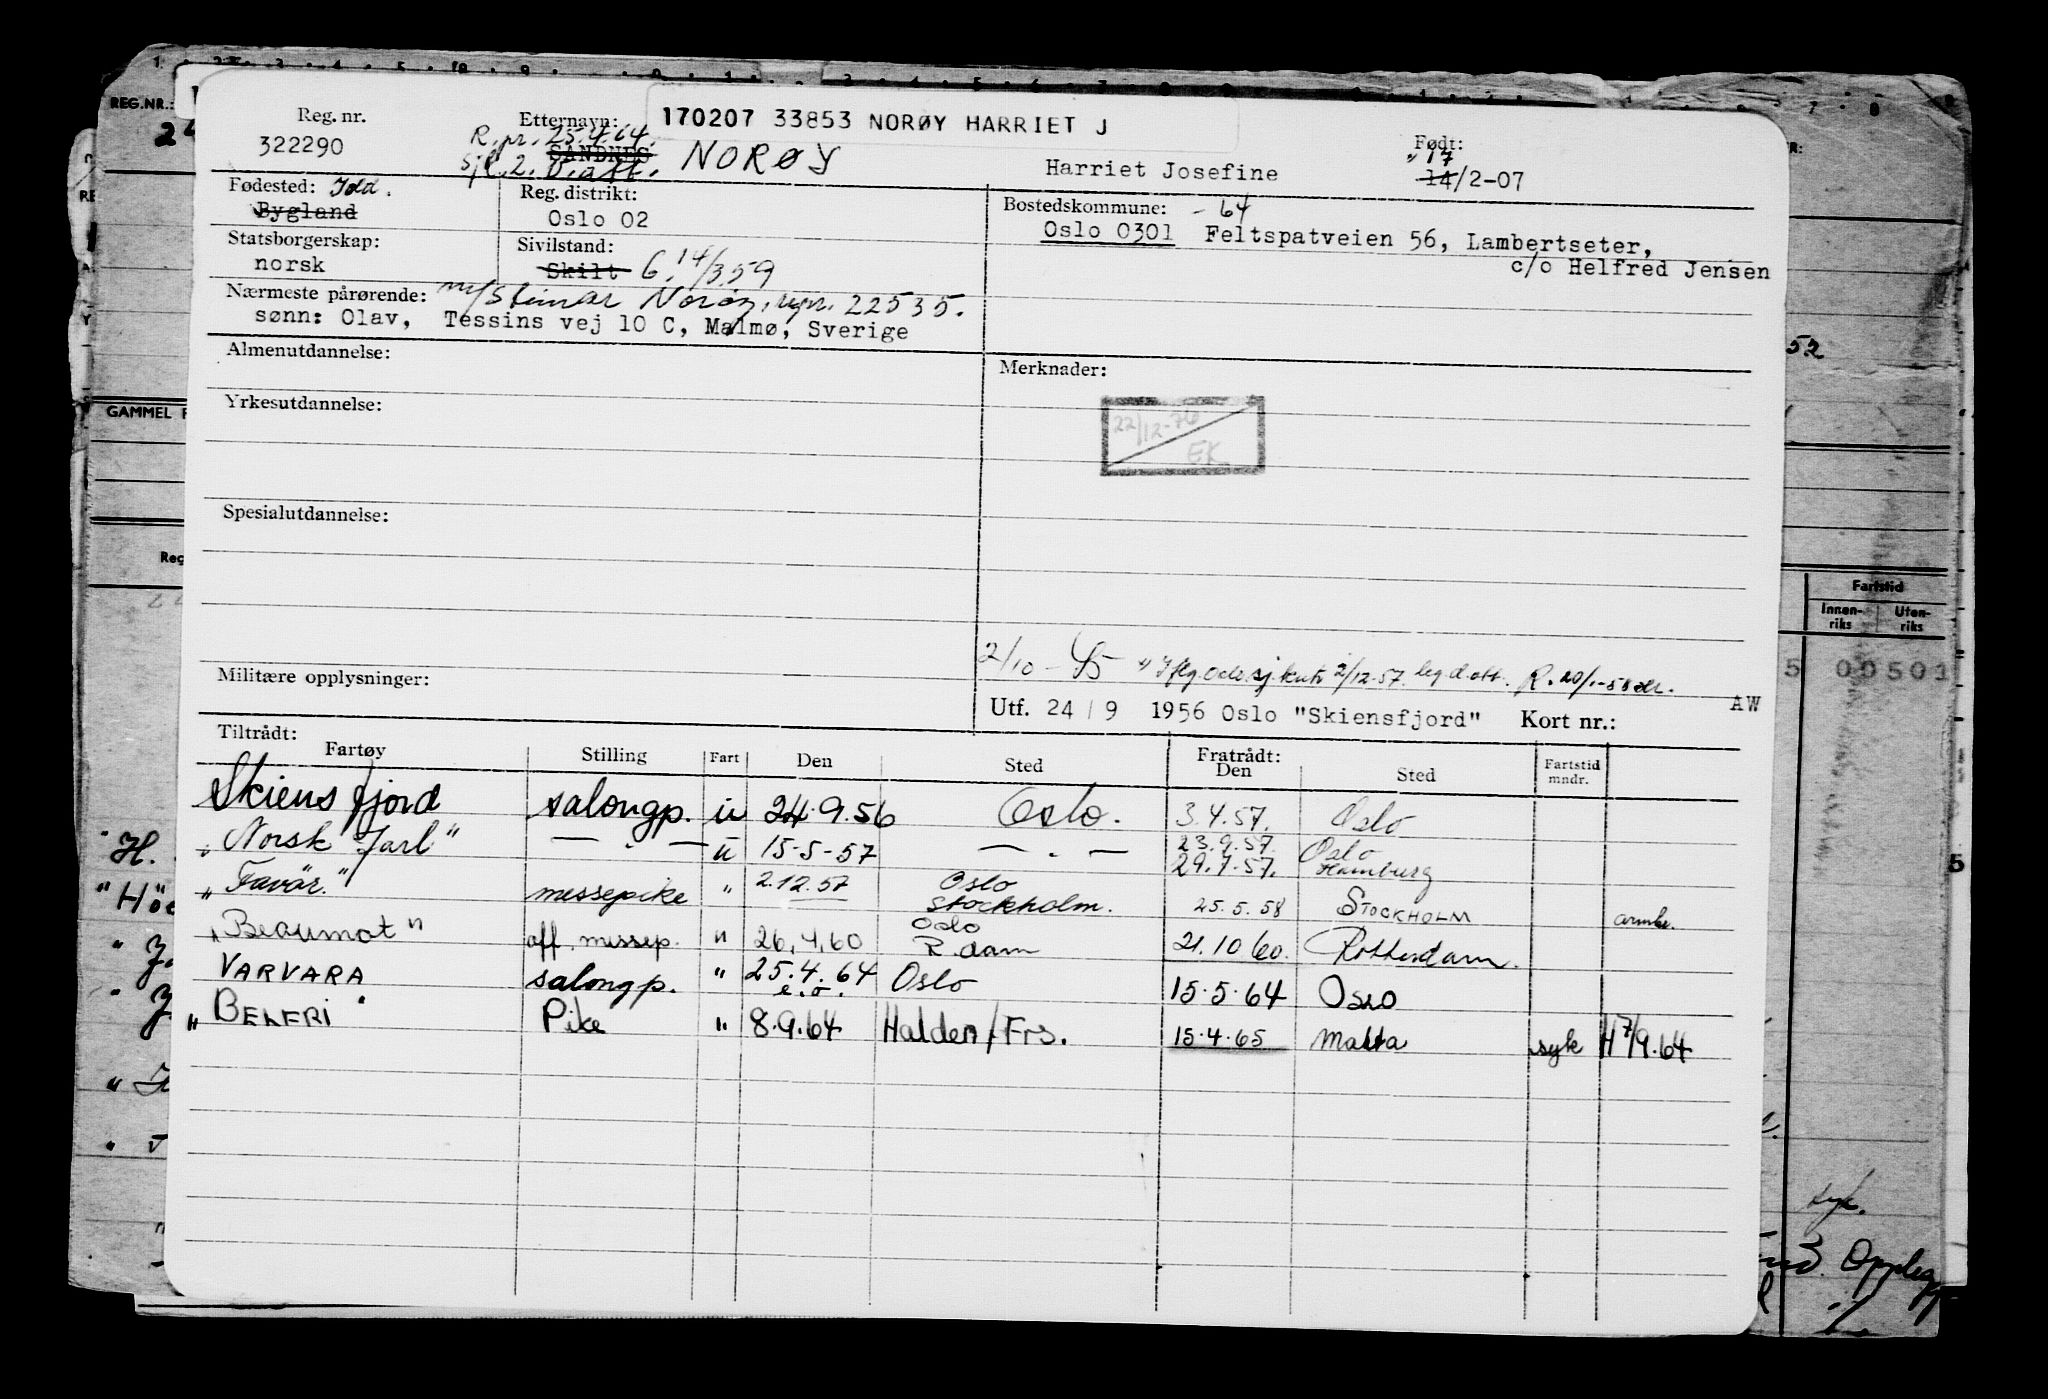 170207 33853 NORØY HARRIET J
Reg. nr.
322290
Etternavn:
R. pr. 25.4.64.
SANDNES NORØY
Harriet Josefine
Født:
" 17
14/2-07
Fødested:
Bygland
Reg. distrikt:
Oslo 02
Bostedskommune: - 64
Oslo 0301 Feltspatveien 56, Lambertseter,
c/o Helfred Jensen
Statsborgerskap:
norsk
Sivilstand:
Skilt G. 14/3.59
Nærmeste pårørende: Norøy, 22535.
sønn: Olav, Tessins vej 10 C, Malmø, Sverige
Almenutdannelse:
Merknader:
Yrkesutdannelse:
22/12-76
EK
Spesialutdannelse:
Militære opplysninger:
2/10 - 45 2/12-57.
Utf. 24/9 1956 Oslo "Skiensfjord" Kort nr.:
AW
Tiltrådt:
Fartøy Stilling Fart Den Sted Fratrådt: Den Sted Fartstid mndr.
Skiensfjord salongp. u 24.9.56 Oslo. 3.4.57. Oslo
"Norsk Jarl" — " — u 15-5-57 — " — 23.9.57. Oslo
29.7.57. Hamburg
"Favär." messepike " 2.12.57 Oslo
Stockholm. 25.5.58 STOCKHOLM
"Beaumot" off. messep. " 26.4.60 Oslo
R.dam 21.10 60. Rotterdam.
VARVARA salongp. " 25.4.64 Oslo 15.5.64 Oslo
e.o.
"BELFRI" Pike " 8.9.64 Halden/Frs. 15.4.65 Malta syk H 7/9.64
REG.NR.:
GAMMEL
Reg
52
Fartstid
Innen-
riks
Uten-
riks
5 00501
5
syk.